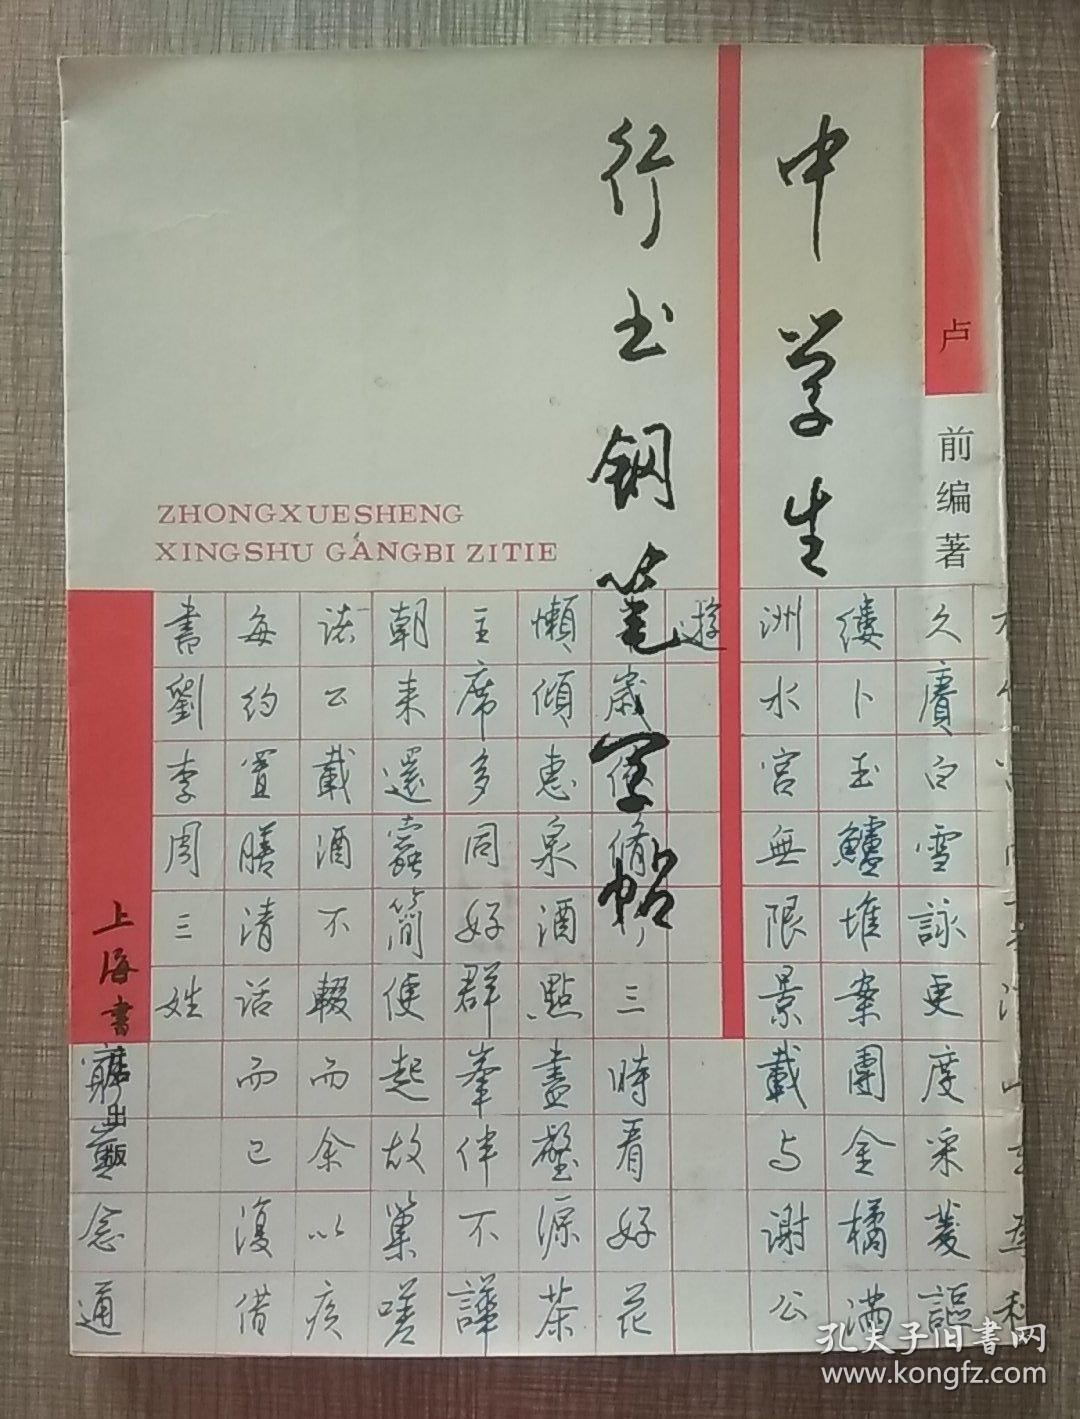 中学生
行书钢笔字帖
卢前编著
ZHONGXUESHENG
XINGSHU GANGBI ZITIE
久賡白雪詠更度采菱謳
縷卜玉鱸堆案團金橘滿
洲水宮無限景載与謝公
遊
三時看好花
懶傾惠泉酒點盡壑源茶
主席多同好群峯伴不譁
朝来還蠹簡便起故巢嗟
諸公載酒不輟而余以疾
每約置膳清话而已復借
書劉李周三姓
念通
上海書店出版
孔夫子旧书网
www.kongfz.com